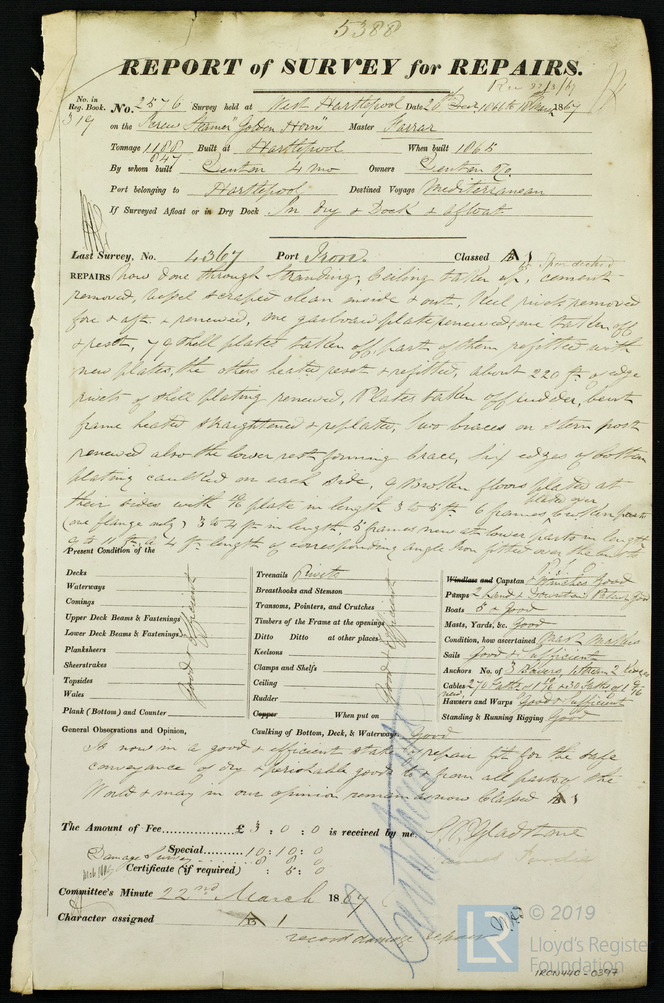 5388
REPORT of SURVEY for REPAIRS.
Rec 22/3/67
No. in Reg. Book. No. 2576 Survey held at West Hartlepool Date 26 Dec 1866 to 18 Mar 1867
319 on the Screw Steamer "Golden Horn" Master Farrar
Tonnage 1188 Built at Hartlepool When built 1865
847
By whom built Denton 4 mo Owners Denton & Co
Port belonging to Hartlepool Destined Voyage Mediterranean
If Surveyed Afloat or in Dry Dock In dry Dock & afloat
Last Survey, No. 4367 Port Iron. Classed A 1 Spar decked
REPAIRS now done through Stranding, Ceiling taken up, cement
removed, vessel scraped clean inside & out, Keel rivets removed
fore & aft & renewed, one garboard plate renewed, one taken off
& reset, shell plates taken off, part of them refitted with
new plates, the others heated reset & refitted, about 220 ft of edge
rivets of shell plating renewed, Plates taken off rudder, bent
frame heated straightened & replated, two braces on stern post
renewed also the lower rest forming brace, six edges of bottom
plating caulked on each side, broken floors plated at
their sides with plate in length 3 to 5 ft 6 frames broken plated over
(one flange only) 3 to 4 ft in length, 5 frames new at lower parts in length
9 to 11 ft, 4 ft length of corresponding angle iron fitted over the butts
Present Condition of the
Decks
Waterways
Comings
Upper Deck Beams & Fastenings
Lower Deck Beams & Fastenings
Planksheers
Sheerstrakes
Topsides
Wales
Plank (Bottom) and Counter
Good & Efficient
Treenails Rivets
Breasthooks and Stemson
Transoms, Pointers, and Crutches
Timbers of the Frame at the openings
Ditto Ditto at other places
Keelsons
Clamps and Shelfs
Ceiling
Rudder
Copper When put on
Good & Efficient
Caulking of Bottom, Deck, & Waterways Good
Windlass and Capstan & Winches Good
Pumps 2 Hand & Downton Patent Good
Boats 5 & Good
Masts, Yards, &c. Good
Condition, how ascertained
Sails Good & Sufficient
Anchors No. of 3 Bowers, 1 Stream 2 Kedges
Cables 270 faths of 1 9/16 + 30 faths of 1 9/16
new
Hawsers and Warps Good & Sufficient
Standing & Running Rigging Good
General Observations and Opinion,
Is now in a good & efficient state of repair fit for the safe
conveyance of dry & perishable goods to & from all parts of the
World & may in our opinion remain as now classed A 1
The Amount of Fee £ 3 : 0 : 0 is received by me,
Special 10 : 10 : 0
Damage Survey 8 : 8 : 0
Certificate (if required) : 5 : 0
Committee's Minute 22nd March 1867
Character assigned A 1
record damage repair
© 2019
Lloyd's Register
Foundation
IRON440-0397